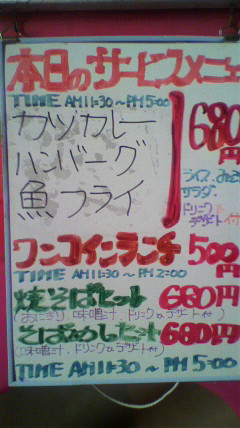 本日のサービスメニュー
TIME AM11:30～PM5:00
カツカレー
ハンバーグ
魚フライ
680円
ライス、みそ
サラダ、
ドリンク
デザート付
ワンコインランチ 500円
TIME AM11:30～PM2:00
焼そばセット 680円
(おにぎり、味噌汁、ドリンク、デザート付)
そばめし 680円
(味噌汁、ドリンク、デザート付)
TIME AM11:30～PM5:00